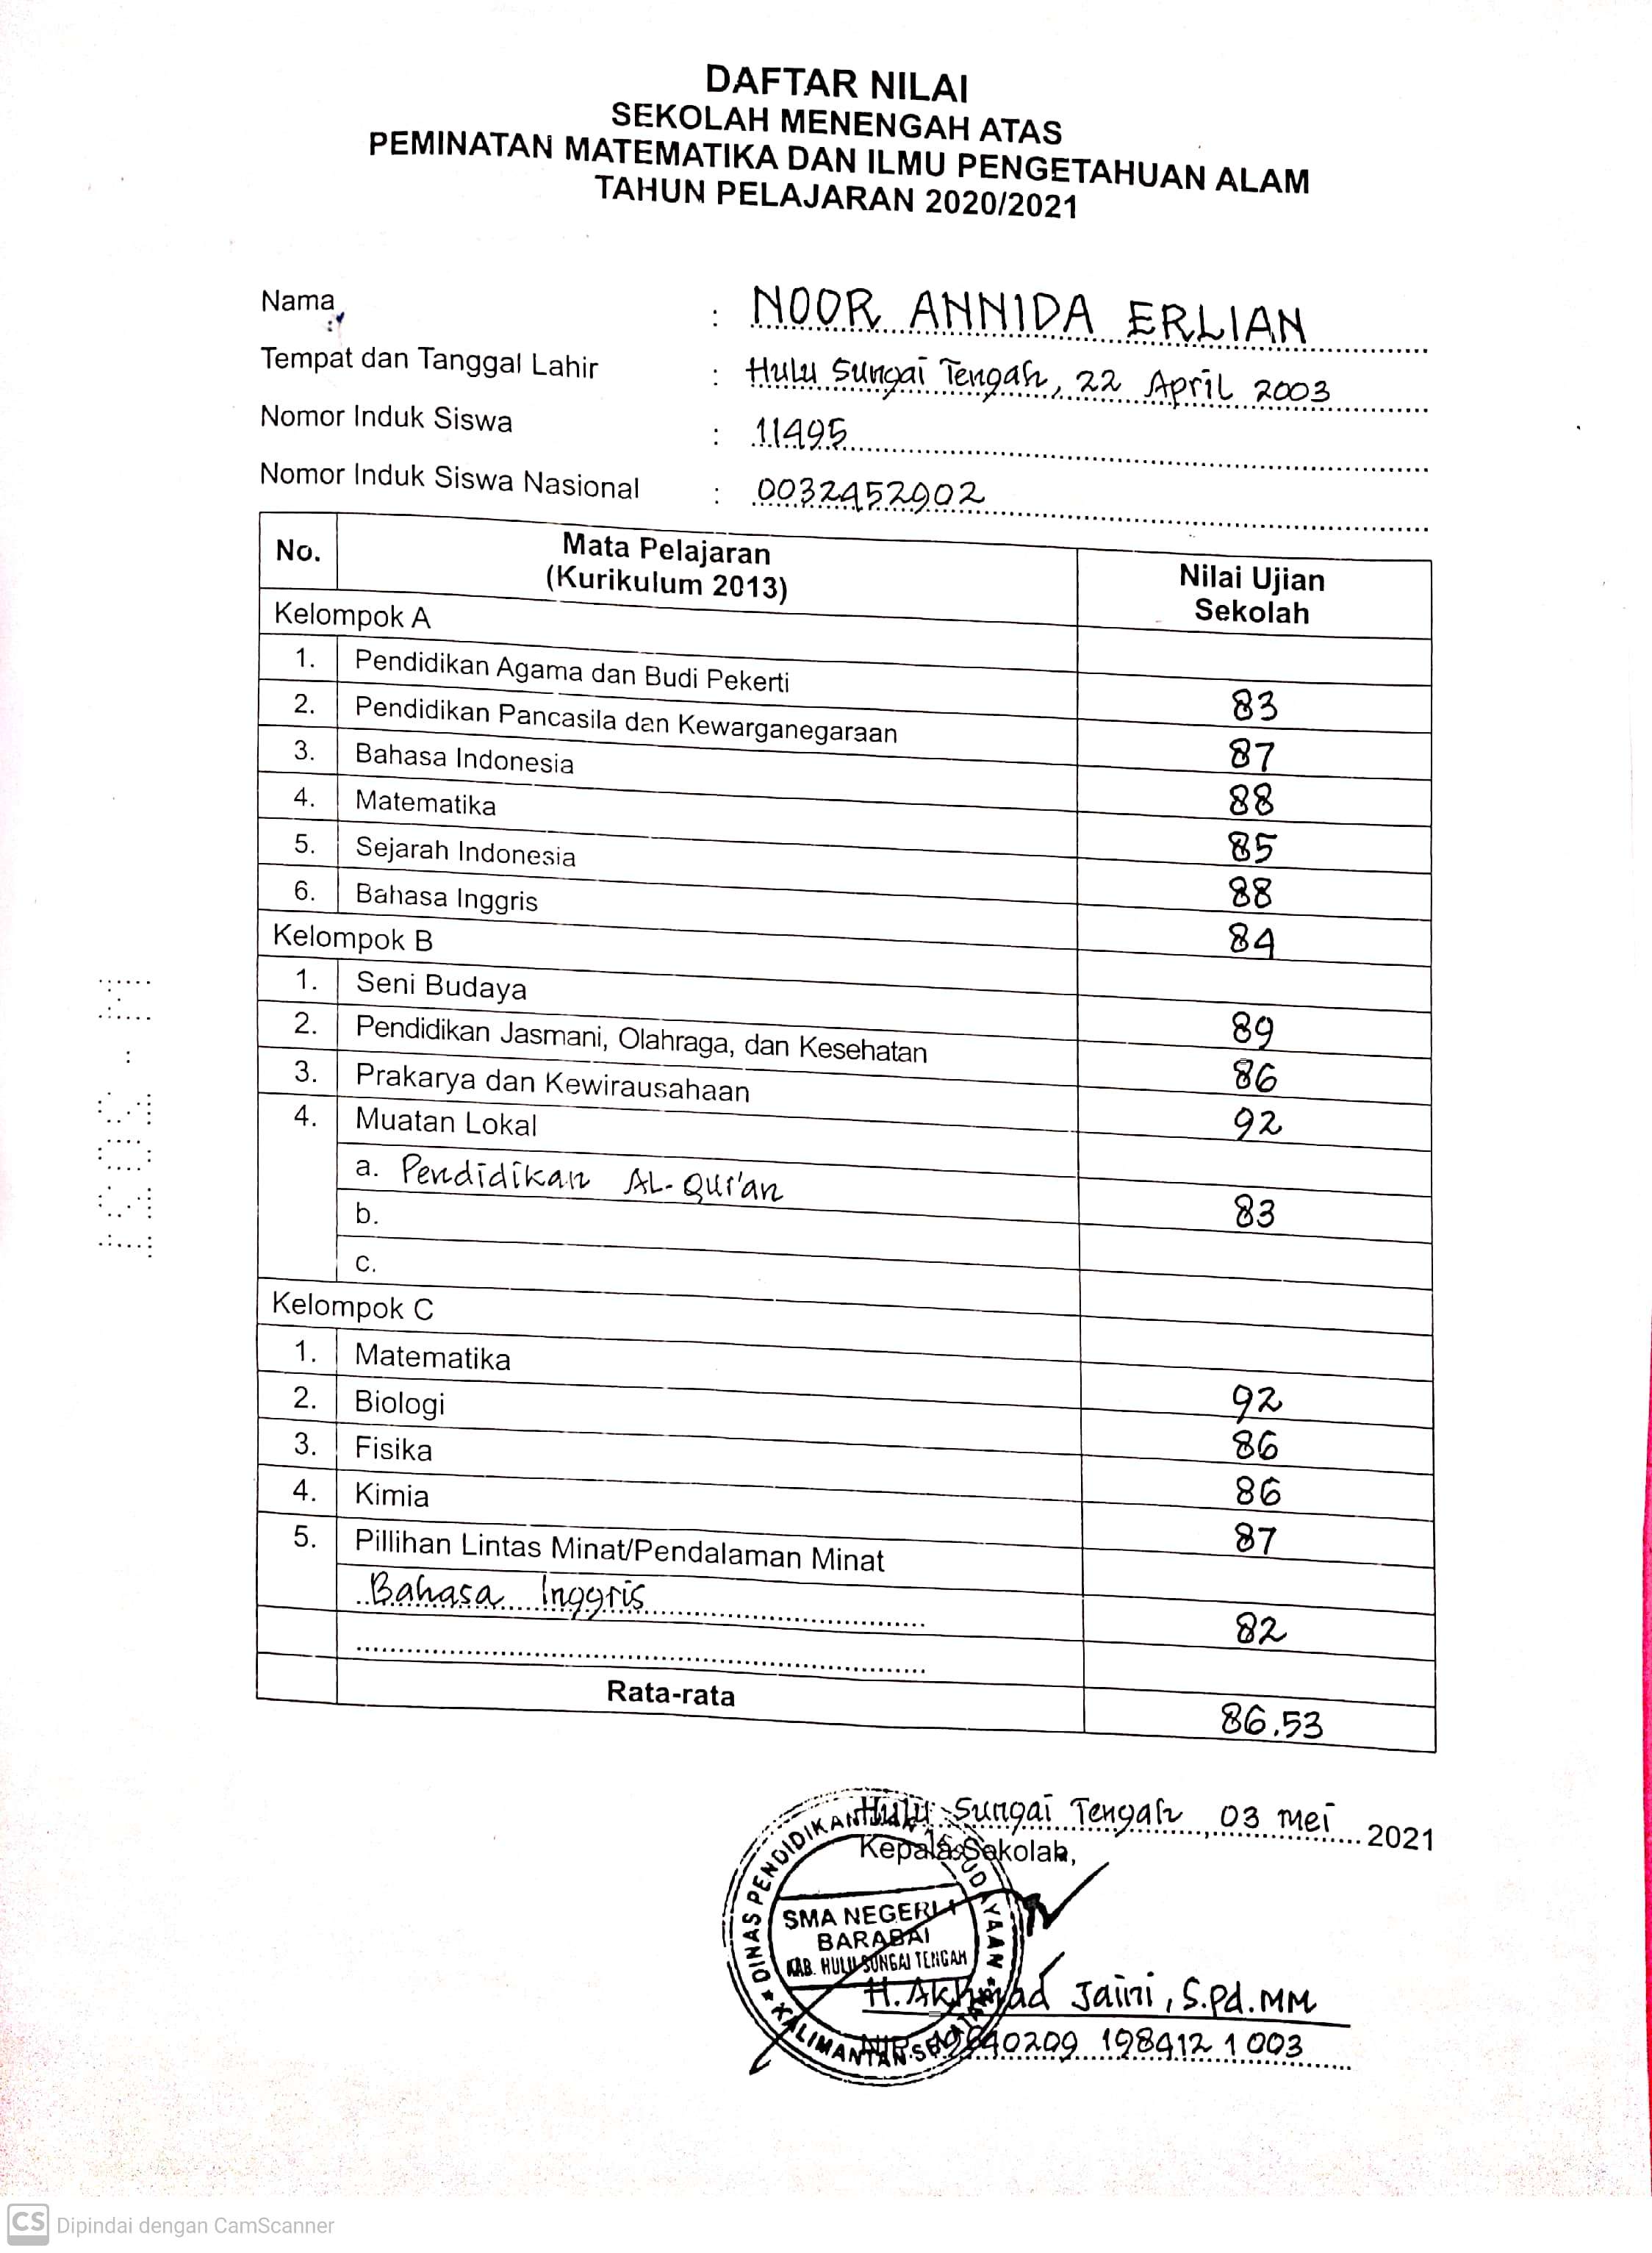 DAFTAR NILAI
SEKOLAH MENENGAH ATAS
PEMINATAN MATEMATIKA DAN ILMU PENGETAHUAN ALAM
TAHUN PELAJARAN 2020/2021
Nama : NOOR ANNIDA ERLIAN
Tempat dan Tanggal Lahir : Hulu Sungai Tengah, 22 April 2003
Nomor Induk Siswa : 11495
Nomor Induk Siswa Nasional : 0032452902
No. Mata Pelajaran (Kurikulum 2013) Nilai Ujian Sekolah
Kelompok A
1. Pendidikan Agama dan Budi Pekerti 83
2. Pendidikan Pancasila dan Kewarganegaraan 87
3. Bahasa Indonesia 88
4. Matematika 85
5. Sejarah Indonesia 88
6. Bahasa Inggris 84
Kelompok B
1. Seni Budaya 89
2. Pendidikan Jasmani, Olahraga, dan Kesehatan 86
3. Prakarya dan Kewirausahaan 92
4. Muatan Lokal
a. Pendidikan AL-Qur'an 83
b.
c.
Kelompok C
1. Matematika 92
2. Biologi 86
3. Fisika 86
4. Kimia 87
5. Pillihan Lintas Minat/Pendalaman Minat
Bahasa Inggris 82
Rata-rata 86.53
Hulu Sungai Tengah, 03 Mei 2021
Kepala Sekolah,
DINAS PENDIDIKAN DAN KEBUDAYAAN
SMA NEGERI 1
BARABAI
KAB. HULU SUNGAI TENGAH
KALIMANTAN SELATAN
H. Akhmad Jaini, S.Pd.MM
NIP. 19640209 198412 1 003
CS Dipindai dengan CamScanner